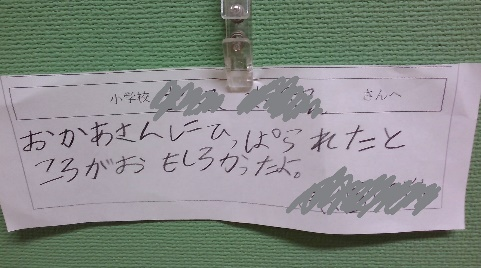 小学校 さんへ
おかあさんにひっぱられたと
ころがおもしろかったよ。